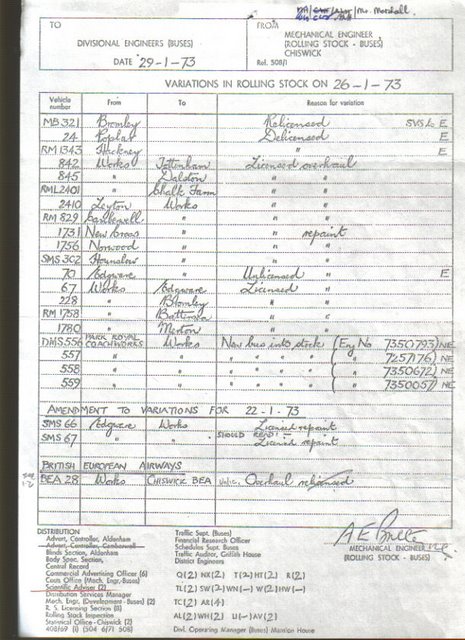 Mr. Marshall
TO
DIVISIONAL ENGINEERS (BUSES)
DATE 29-1-73
FROM
MECHANICAL ENGINEER
(ROLLING STOCK - BUSES)
CHISWICK
Rol. 508/1
VARIATIONS IN ROLLING STOCK ON 26-1-73
Vehicle number From To Reason for variation
MB 321 Bromley Relicensed SVS Lo E
24 Poplar Delicensed E
RM 1343 Hackney " E
842 Works Tottenham Licensed overhaul
845 " Dalston " "
RML 2401 " Chalk Farm " "
2410 Leyton Works " "
RM 829 Camberwell " " "
1731 New Cross " " repaint
1756 Norwood " " "
SMS 302 Hounslow " " "
70 Edgware " Unlicensed " E
67 Works Edgware Licensed "
228 " Bromley " "
RM 1758 " Battersea " "
1780 " Merton " "
DMS 556 PARK ROYAL COACHWORKS Works New bus into stock (Eng No 7350793) NE
557 " " " " " " ( " 7257176) NE
558 " " " " " " ( " 7350672) NE
559 " " " " " " ( " 7350057) NE
AMENDMENT TO VARIATIONS FOR 22-1-73
SMS 66 Edgware Works Licensed repaint
SHOULD READ:-
SMS 67 " " Licensed repaint
BRITISH EUROPEAN AIRWAYS
BEA 28 Works CHISWICK BEA Overhaul relicensed
DISTRIBUTION
Advert. Controller, Aldenham
Advert. Controller, Camberwell
Blinds Section, Aldenham
Body Spec. Section,
Central Record
Commercial Advertising Officer (6)
Costs Office (Mech. Engr. Buses)
Scientific Adviser (2)
Distribution Services Manager
Mech. Engr. (Development - Buses) (2)
R. S. Licensing Section (8)
Rolling Stock Inspection
Statistical Office - Chiswick (2)
408/69 (1) (504 6/71 508)
Traffic Supt. (Buses)
Financial Research Officer
Schedules Supt. Buses
Traffic Auditor, Griffith House
District Engineers
Q(2) NX(2) T(2) HT(2) R(2)
TL(2) SW(2) WN(-) W(2) HW(-)
TC(2) AR(4)
AL(2) WH(2) U(-) AV(2)
Divl. Operating Manager (Buses) Mansion House
MECHANICAL ENGINEER
(ROLLING STOCK - BUSES)